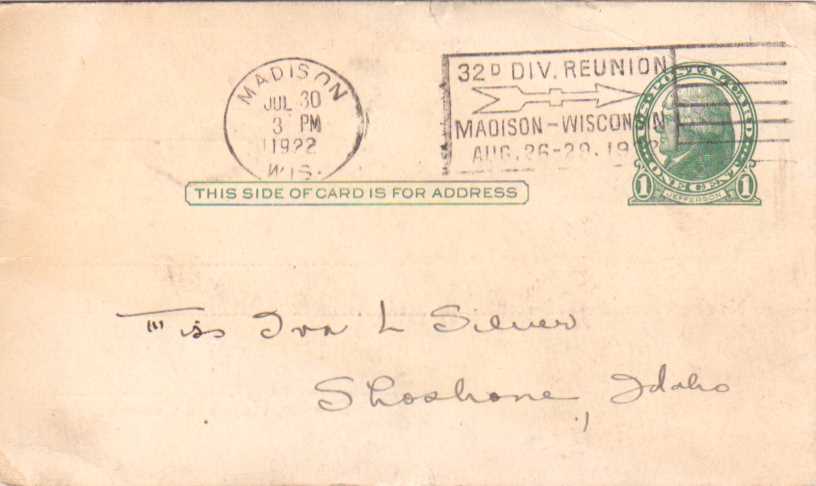 MADISON
JUL 30
3 PM
1922
WIS.
32D DIV. REUNION
MADISON-WISCONSIN
AUG. 26-29. 192
U.S. POSTAL CARD
ONE CENT
1 1
JEFFERSON
THIS SIDE OF CARD IS FOR ADDRESS
Miss Iva L Silver
Shoshone, Idaho